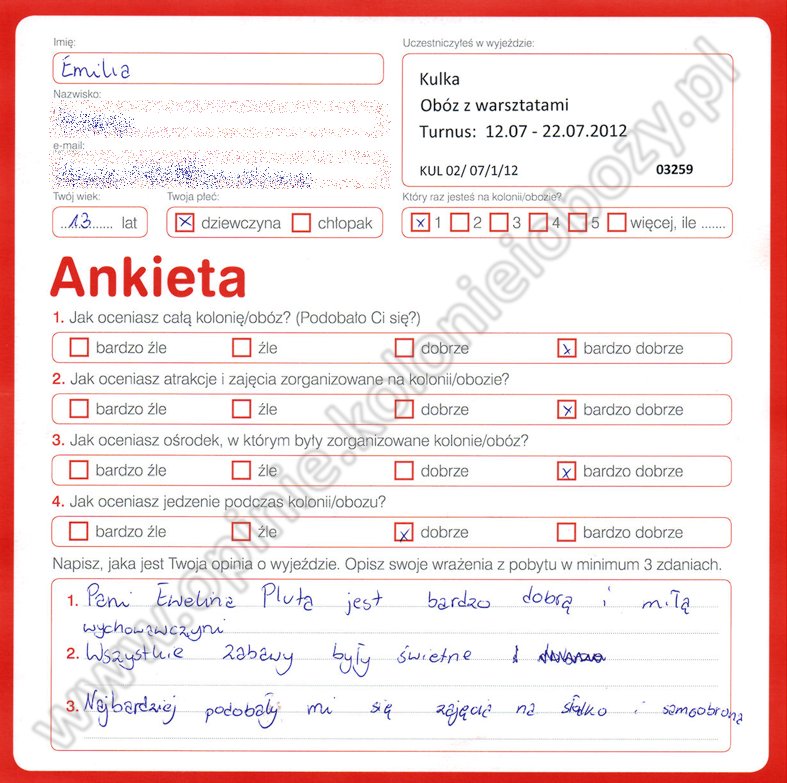 Imię:
Emilia
Uczestniczyłeś w wyjeździe:
Kulka
Obóz z warsztatami
Turnus: 12.07 - 22.07.2012
KUL 02/ 07/1/12 03259
Nazwisko:
e-mail:
Twój wiek: Twoja płeć: Który raz jesteś na kolonii/obozie?
..13...... lat x dziewczyna chłopak x 1 2 3 4 5 więcej, ile .......
Ankieta
1. Jak oceniasz całą kolonię/obóz? (Podobało Ci się?)
bardzo źle źle dobrze x bardzo dobrze
2. Jak oceniasz atrakcje i zajęcia zorganizowane na kolonii/obozie?
bardzo źle źle dobrze x bardzo dobrze
3. Jak oceniasz ośrodek, w którym były zorganizowane kolonie/obóz?
bardzo źle źle dobrze x bardzo dobrze
4. Jak oceniasz jedzenie podczas kolonii/obozu?
bardzo źle źle x dobrze bardzo dobrze
Napisz, jaka jest Twoja opinia o wyjeździe. Opisz swoje wrażenia z pobytu w minimum 3 zdaniach.
1. Pani Ewelina Pluta jest bardzo dobrą i miłą
wychowawczyni
2. Wszystkie zabawy były świetne
3. Najbardziej podobały mi się zajęcia na słodko i samoobrona
www.opinie.kolonieiobozy.pl